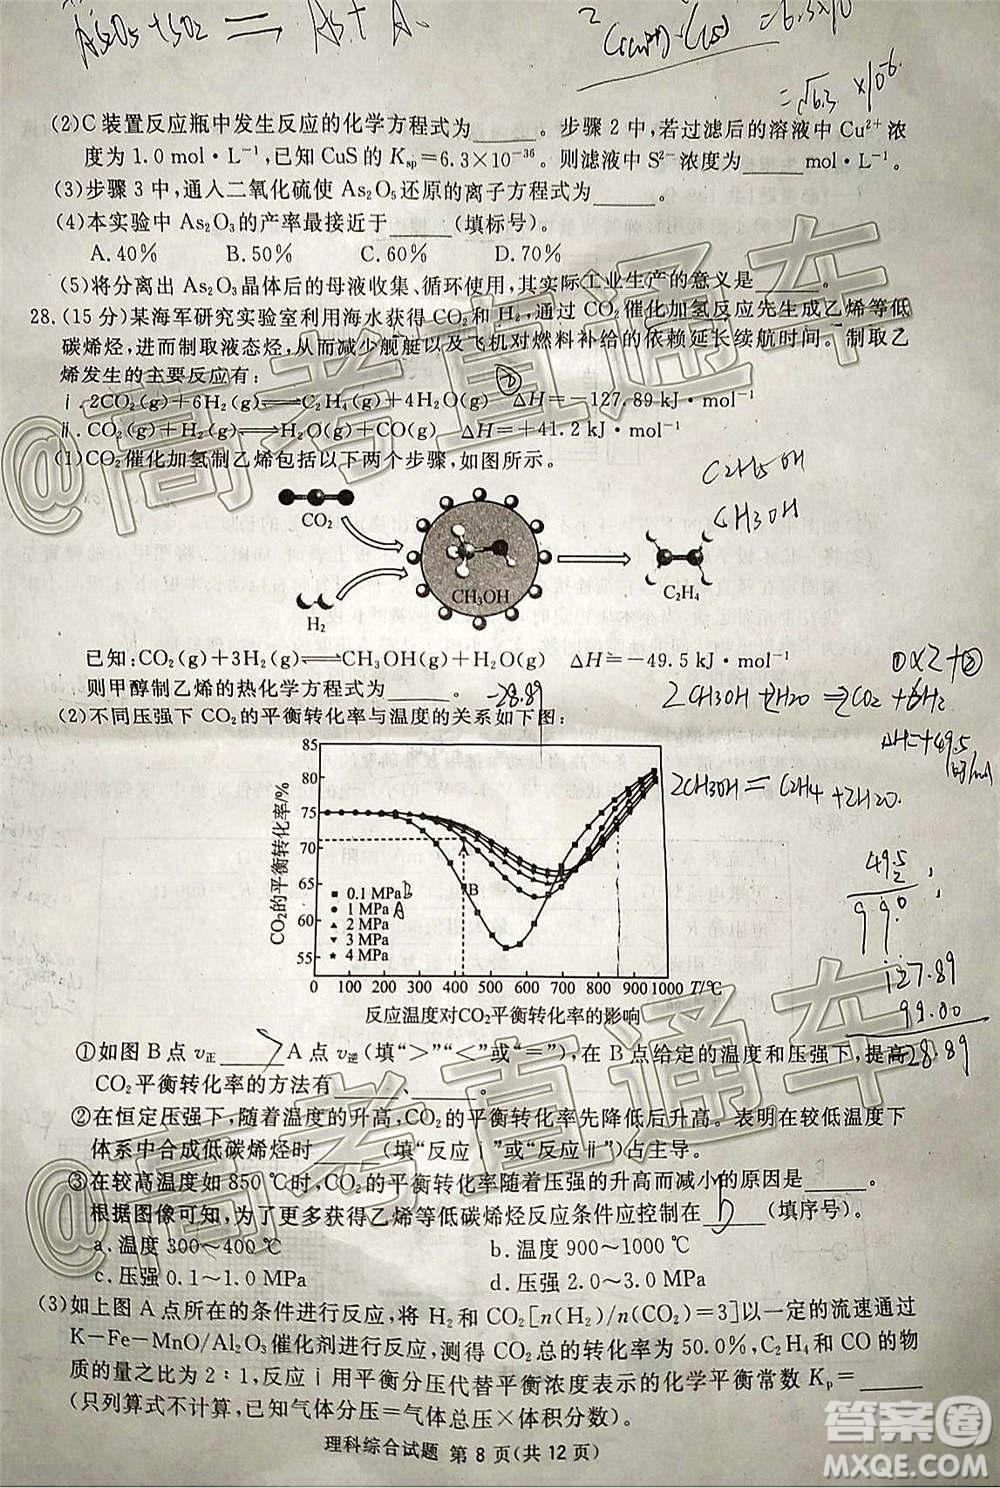 As₂O₅ + SO₂ = As +
= 6.3×10
= √6.3 ×10⁻⁶.
(2)C装置反应瓶中发生反应的化学方程式为______。步骤2中,若过滤后的溶液中Cu²⁺浓
度为1.0 mol·L⁻¹,已知CuS的Kₛₚ=6.3×10⁻³⁶。则滤液中S²⁻浓度为______mol·L⁻¹。
(3)步骤3中,通入二氧化硫使As₂O₅还原的离子方程式为______。
(4)本实验中As₂O₃的产率最接近于______(填标号)。
A.40% B.50% C.60% D.70%
(5)将分离出As₂O₃晶体后的母液收集、循环使用,其实际工业生产的意义是______。
28.(15分)某海军研究实验室利用海水获得CO₂和H₂,通过CO₂催化加氢反应先生成乙烯等低
碳烯烃,进而制取液态烃,从而减少舰艇以及飞机对燃料补给的依赖延长续航时间。制取乙
烯发生的主要反应有:
ⅰ.2CO₂(g)+6H₂(g)⇌C₂H₄(g)+4H₂O(g) ΔH=−127.89 kJ·mol⁻¹
ⅱ.CO₂(g)+H₂(g)⇌H₂O(g)+CO(g) ΔH=+41.2 kJ·mol⁻¹
(1)CO₂催化加氢制乙烯包括以下两个步骤,如图所示。
C2H5OH
CH3OH
CO₂
CH₃OH
C₂H₄
H₂
已知:CO₂(g)+3H₂(g)⇌CH₃OH(g)+H₂O(g) ΔH=−49.5 kJ·mol⁻¹
①×2+②
则甲醇制乙烯的热化学方程式为______。
-28.89
2CH3OH+2H2O⇌2CO2+6H2
(2)不同压强下CO₂的平衡转化率与温度的关系如下图:
ΔH=+49.5
kJ/mol
2CH3OH=C2H4+2H2O.
CO₂的平衡转化率/%
85
80
75
70
65
60
55
A
B
0.1 MPa B
1 MPa A
2 MPa
3 MPa
4 MPa
0 100 200 300 400 500 600 700 800 900 1000 T/℃
反应温度对CO₂平衡转化率的影响
49.5
2
99.0
127.89
99.00
-28.89
①如图B点v正___>___A点v逆(填“>”“<”或“=”),在B点给定的温度和压强下,提高
CO₂平衡转化率的方法有______、______。
②在恒定压强下,随着温度的升高,CO₂的平衡转化率先降低后升高。表明在较低温度下
体系中合成低碳烯烃时______(填“反应ⅰ”或“反应ⅱ”)占主导。
③在较高温度如850℃时,CO₂的平衡转化率随着压强的升高而减小的原因是______。
根据图像可知,为了更多获得乙烯等低碳烯烃反应条件应控制在___b___(填序号)。
a.温度300~400℃ b.温度900~1000℃
c.压强0.1~1.0 MPa d.压强2.0~3.0 MPa
(3)如上图A点所在的条件进行反应,将H₂和CO₂[n(H₂)/n(CO₂)=3]以一定的流速通过
K−Fe−MnO/Al₂O₃催化剂进行反应,测得CO₂总的转化率为50.0%,C₂H₄和CO的物
质的量之比为2∶1,反应ⅰ用平衡分压代替平衡浓度表示的化学平衡常数Kₚ=______
(只列算式不计算,已知气体分压=气体总压×体积分数)。
理科综合试题 第8页(共12页)
@高考直通车
@高考直通车
答案圈
MXQE.COM